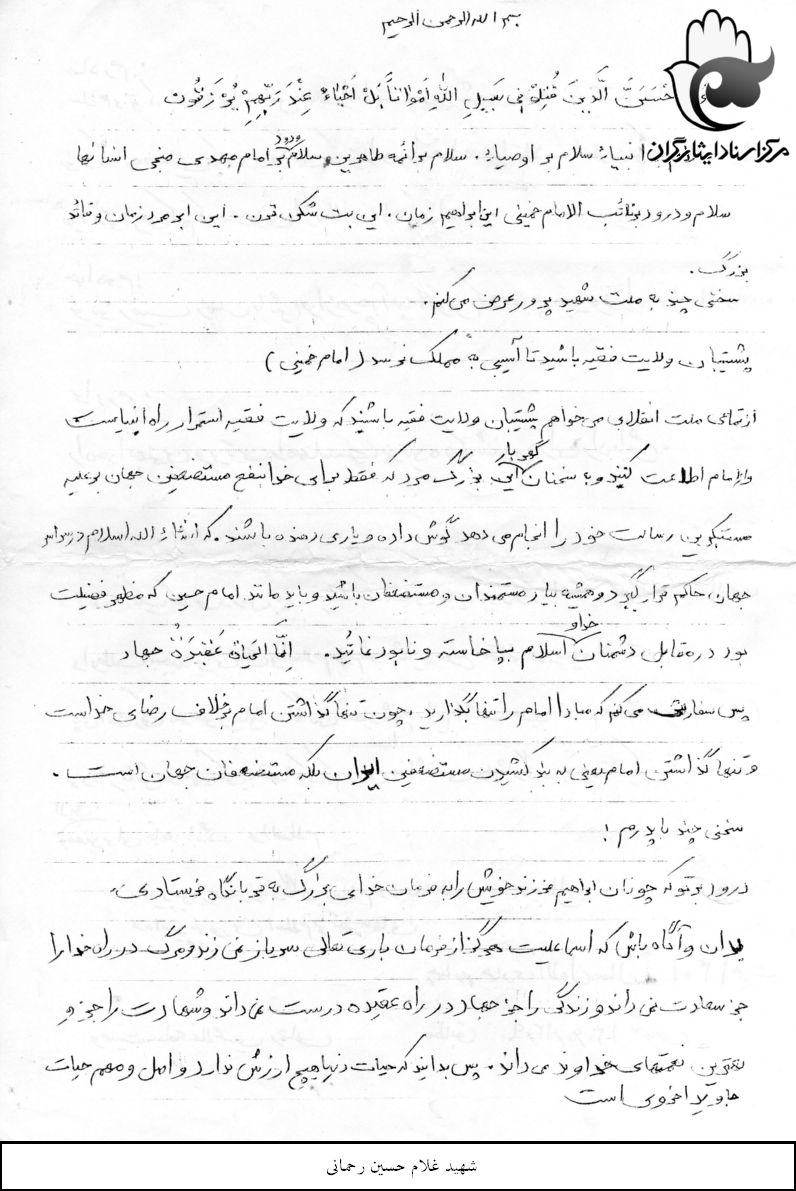 بسم الله الرحمن الرحیم
حْسَبَنَّ الَّذینَ قُتِلُو فی سَبیلِ اللّهِ اَمْواتاً بَلْ اَحْیاءٌ عِنْدَ رَبِّهِمْ یُرْزَقُون
مرکز اسناد ایثارگران
انبیاء سلام بر اوصیاء. سلام بر ائمه طاهرین، سلام و درود بر امام مهدی منجی انسانها
سلام و درود بر نائب الامام خمینی این ابراهیم زمان. این بت شکن قرن. این ابرمرد زمان و قائد
بزرگ.
سخنی چند به ملت شهید پرور عرض می‌کنم.
پشتیبان ولایت فقیه باشید تا آسیبی به مملکت نرسد (امام خمینی)
از تمامی ملت انقلابی می‌خواهم پشتیبان ولایت فقیه باشند که ولایت فقیه استمرار راه انبیاست
و از امام اطلاعت کنید و به سخنان گهربار این بزرگ مرد که فقط برای خدا بنفع مستضعفین جهان بر علیه
مستکبرین رسالت خود را انجام می‌دهد گوش داده و یاری دهنده باشند. که انشاء الله اسلام در سراسر
جهان، حاکم قرار گیرد و همیشه بیار مستمندان و مستضعفان باشید و باید مانند امام حسین که مظهر فضیلت
بود در مقابل دشمنان خدا و اسلام بپا خاسته و نابود نمائید. اِنَّمَا الحَیاةُ عَقیدَةٌ جهاد
پس سفارش می‌کنم که مبادا امام را تنها بگذارید. چون تنها گذاشتن امام بر خلاف رضای خداست
و تنها گذاشتن امام یعنی به بند کشیدن مستضعفین ایران بلکه مستضعفان جهان است.
سخنی چند با پدرم!
درود بر تو که چونان ابراهیم فرزند خویش را به فرمان خدای بزرگ به قربانگاه فرستادی.
بدان و آگاه باش که اسماعیلت هرگز از فرمان باری تعالی سرباز نمی زند و مرگ در راه خدا را
جز سعادت نمی داند و زندگی را جز جهاد در راه عقیده درست نمی داند و شهادت را جزء
بهترین نعمتهای خداوند می داند. پس بدانید که حیات دنیا هیچ ارزش ندارد و اصل و مهم حیات
جاوید اخروی است
شهید غلام حسین رحمانی